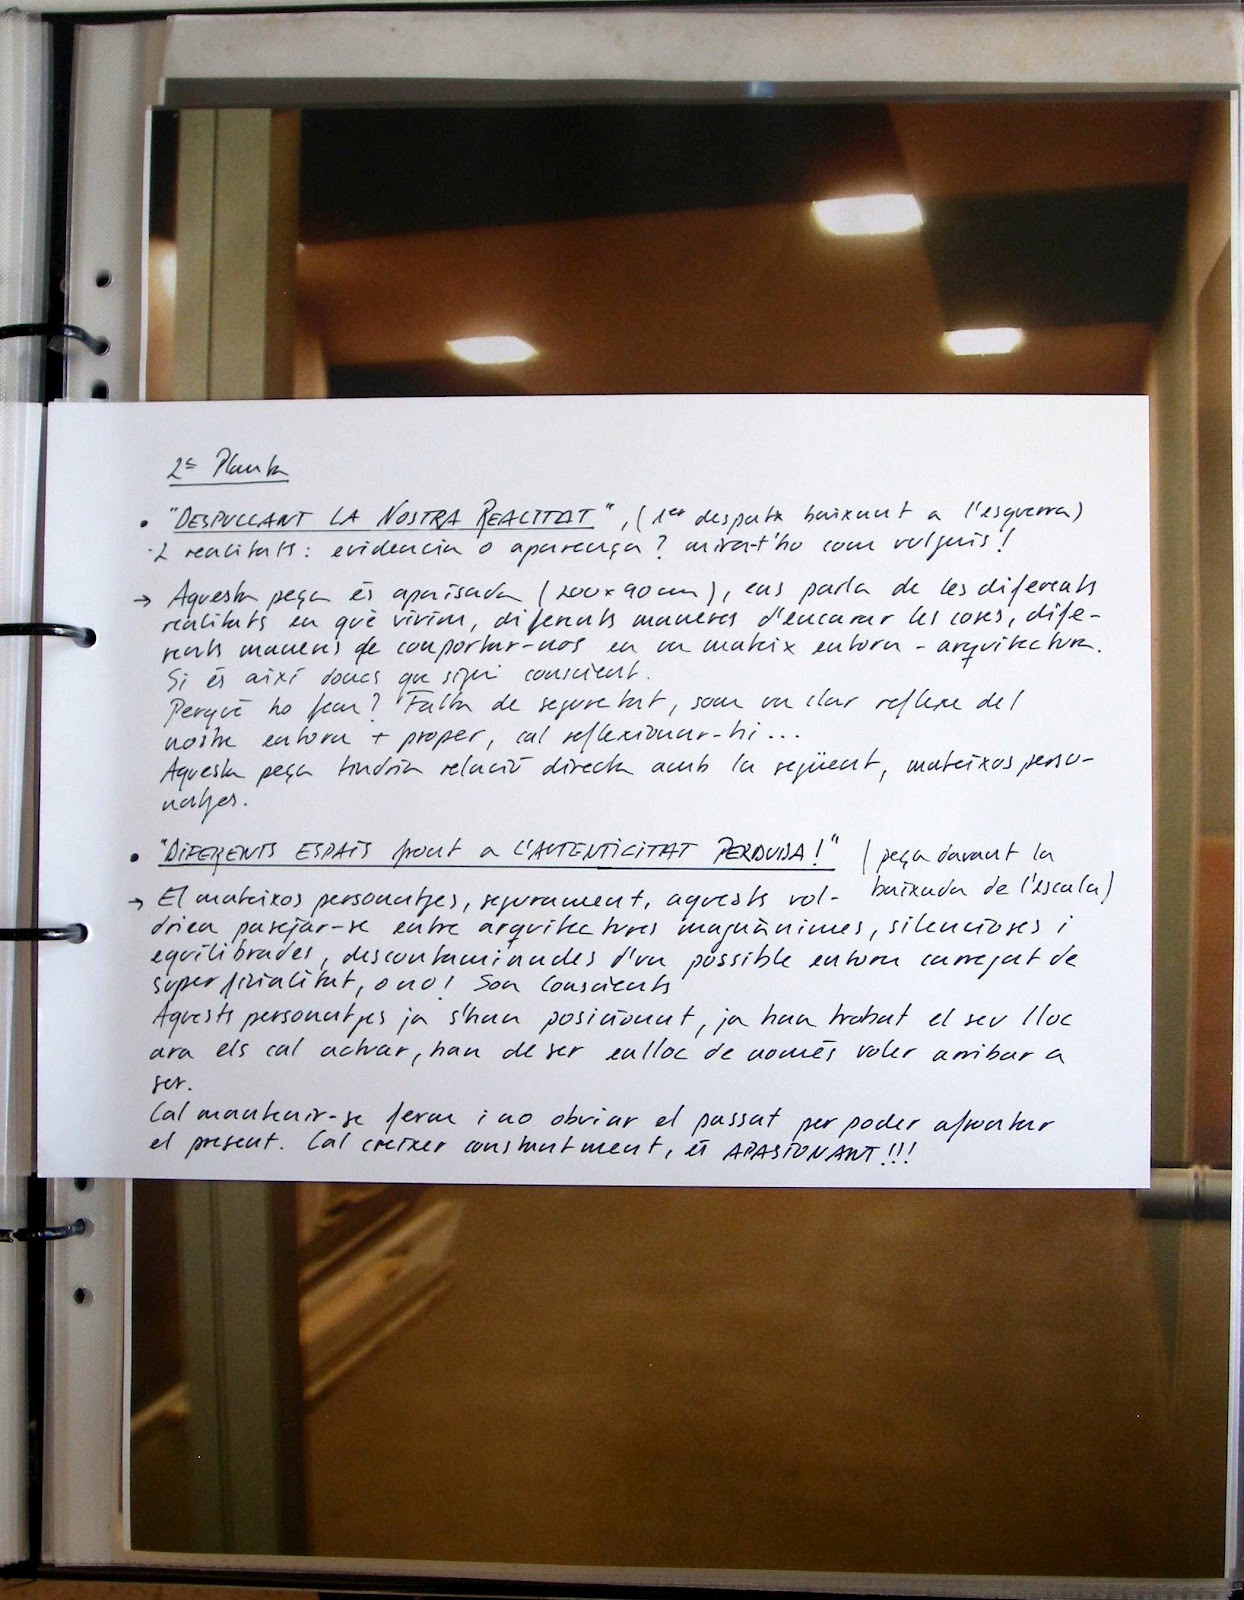 2ª Planta
• "DESPULLANT LA NOSTRA REALITAT", (1er despatx baixant a l'esquerra)
·2 realitats: evidencia o aparença? mira-t'ho com vulguis!
→ Aquesta peça és apaïsada (200x90cm), ens parla de les diferents
realitats en què vivim, diferents maneres d'encarar les coses, dife-
rents maneres de comportar-nos en un mateix entorn - arquitectura.
Si és així doncs que sigui conscient.
Perquè ho fem? Falta de seguretat, som un clar reflexe del
nostre entorn + proper, cal reflexionar-hi...
Aquesta peça tindria relació directa amb la següent, mateixos perso-
natjes.
• "DIFERENTS ESPAIS front a L'AUTENTICITAT PERDUDA!" (peça davant la
baixada de l'escala)
→ El mateixos personatjes, segurament, aquests vol-
drien pasejar-se entre arquitectures magnànimes, silencioses i
equilibrades, descontaminades d'un possible entorn carregat de
superficialitat, o no! Son Conscients
Aquests personatjes ja s'han posicionat, ja han trobat el seu lloc
ara els cal actuar, han de ser enlloc de només voler arribar a
ser.
Cal mantenir-se ferm i no obviar el passat per poder afrontar
el present. Cal creixer constantment, és APASIONANT!!!